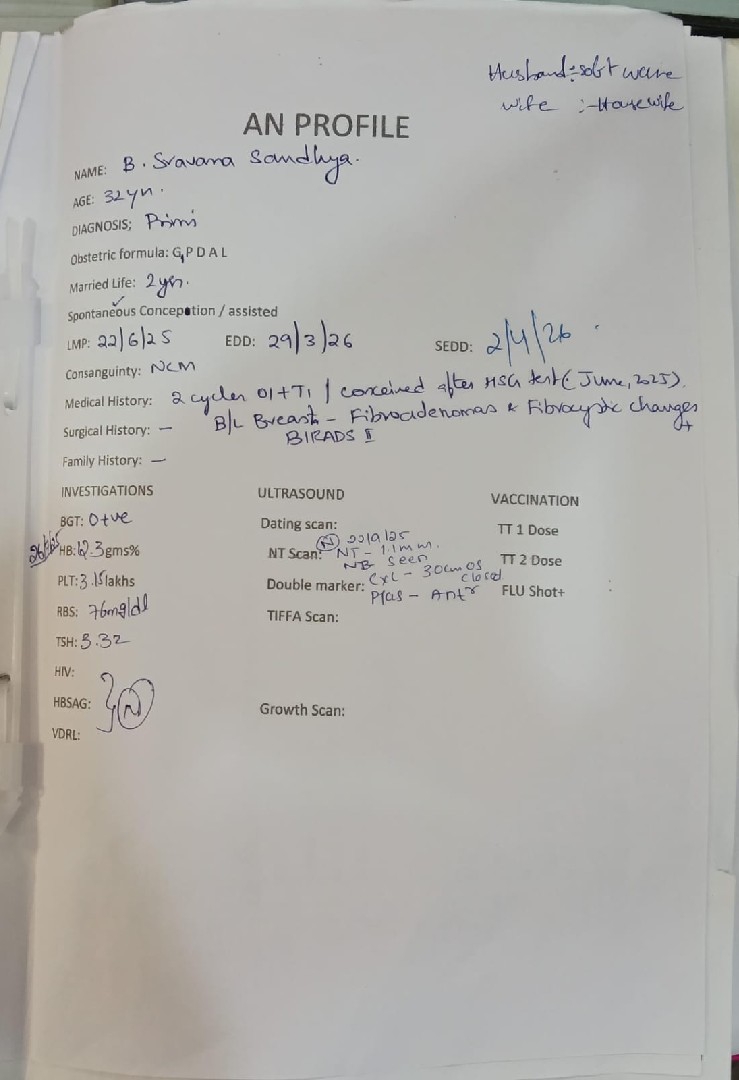 Husband:-software
wife :-Housewife
AN PROFILE
NAME: B. Sravana Sandhya.
AGE: 32yr.
DIAGNOSIS; Primi
Obstetric formula: G1 P D A L
Married Life: 2yr.
Spontaneous Conception / assisted ✓
LMP: 22/6/25 EDD: 29/3/26 SEDD: 2/4/26
Consanguinty: NCM
Medical History: 2 cycles OI+TI / conceived after HSG test (June, 2025).
B/L Breast - Fibroadenomas & Fibrocystic changes +
Surgical History: - BIRADS II
Family History: -
INVESTIGATIONS ULTRASOUND VACCINATION
BGT: O+ve Dating scan: TT 1 Dose
HB: 12.3gms% NT Scan: (N) 22/9/25 NT - 1.1mm. NB seen TT 2 Dose
PLT: 3.15lakhs Double marker: CxL - 30cm OS closed FLU Shot+
Plas - Antr
RBS: 76mg/dl TIFFA Scan:
TSH: 3.32
HIV:
HBSAG: } (N) Growth Scan:
VDRL: